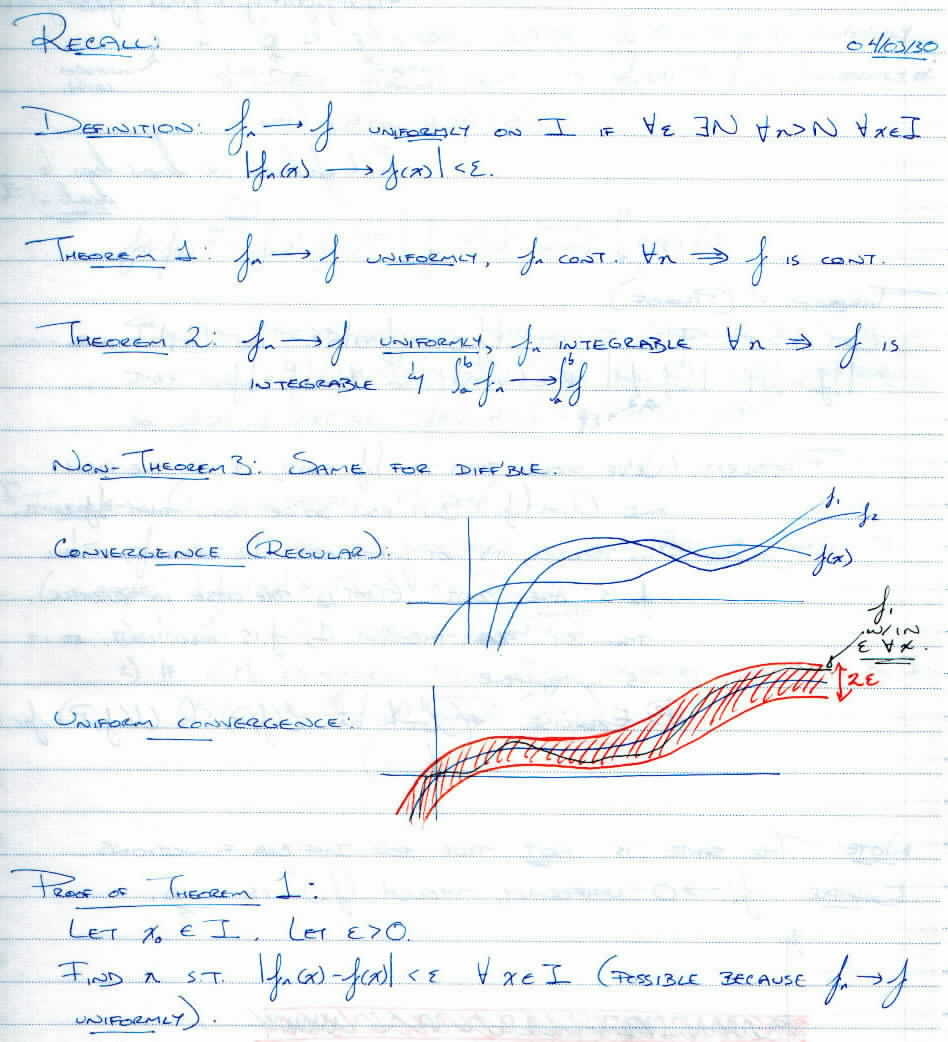 RECALL: 04/03/30
DEFINITION: fₙ → f UNIFORMLY ON I IF ∀ε ∃N ∀n>N ∀x∈I
|fₙ(x) → f(x)| < ε.
THEOREM 1: fₙ → f UNIFORMLY, fₙ CONT. ∀n ⇒ f IS CONT.
THEOREM 2: fₙ → f UNIFORMLY, fₙ INTEGRABLE ∀n ⇒ f IS
INTEGRABLE & ∫ₐᵇ fₙ → ∫ₐᵇ f
NON-THEOREM 3: SAME FOR DIFF'BLE.
f₁
f₂
CONVERGENCE (REGULAR): f(x)
f₁
W/IN
ε ∀x.
2ε
UNIFORM CONVERGENCE:
PROOF OF THEOREM 1:
LET x₀ ∈ I. LET ε>0.
FIND n S.T. |fₙ(x) - f(x)| < ε ∀ x∈I (POSSIBLE BECAUSE fₙ → f
UNIFORMLY).